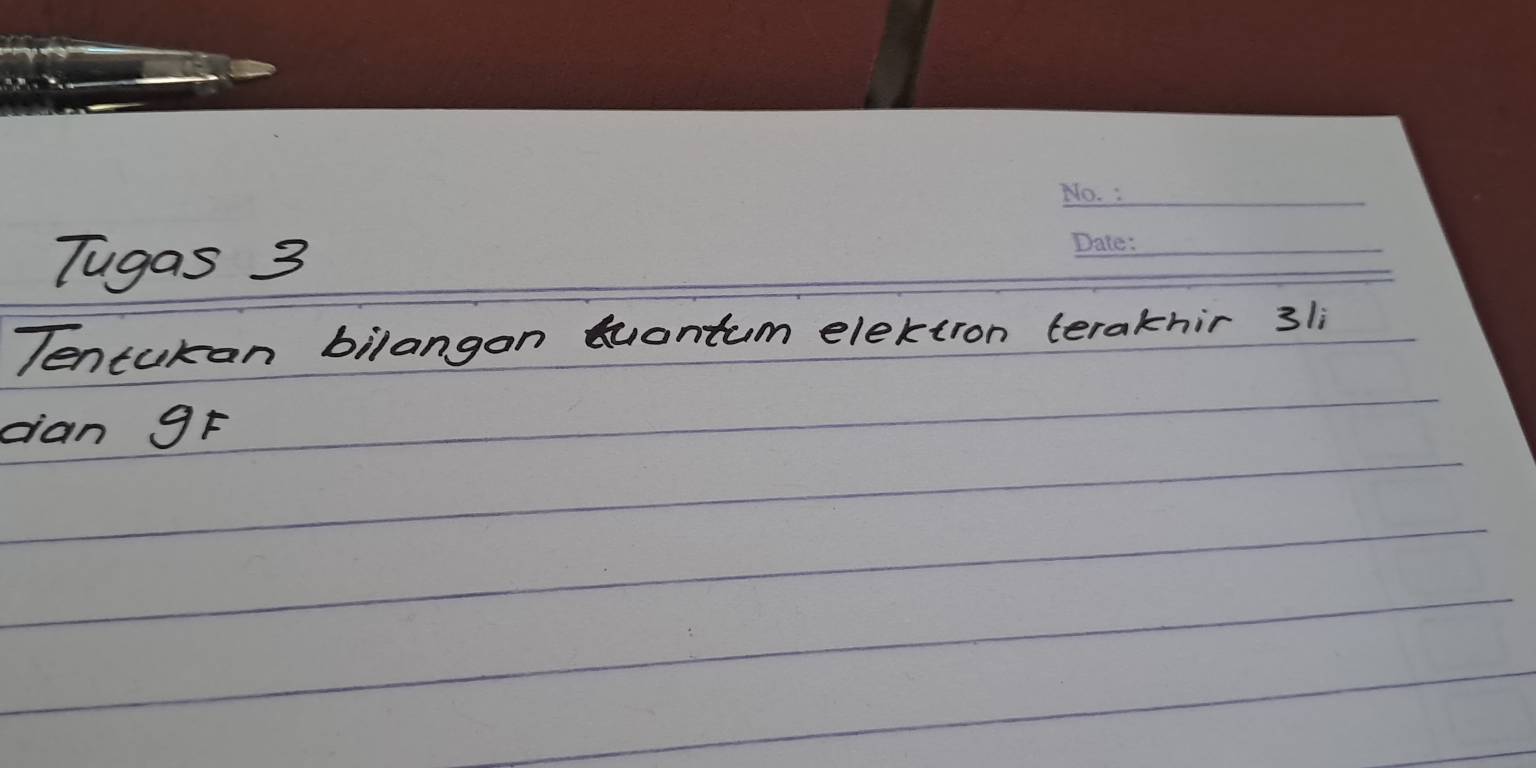 No. :
Date:
Tugas 3
Tentukan bilangan kuantum elektron terakhir 3li
dan 9F